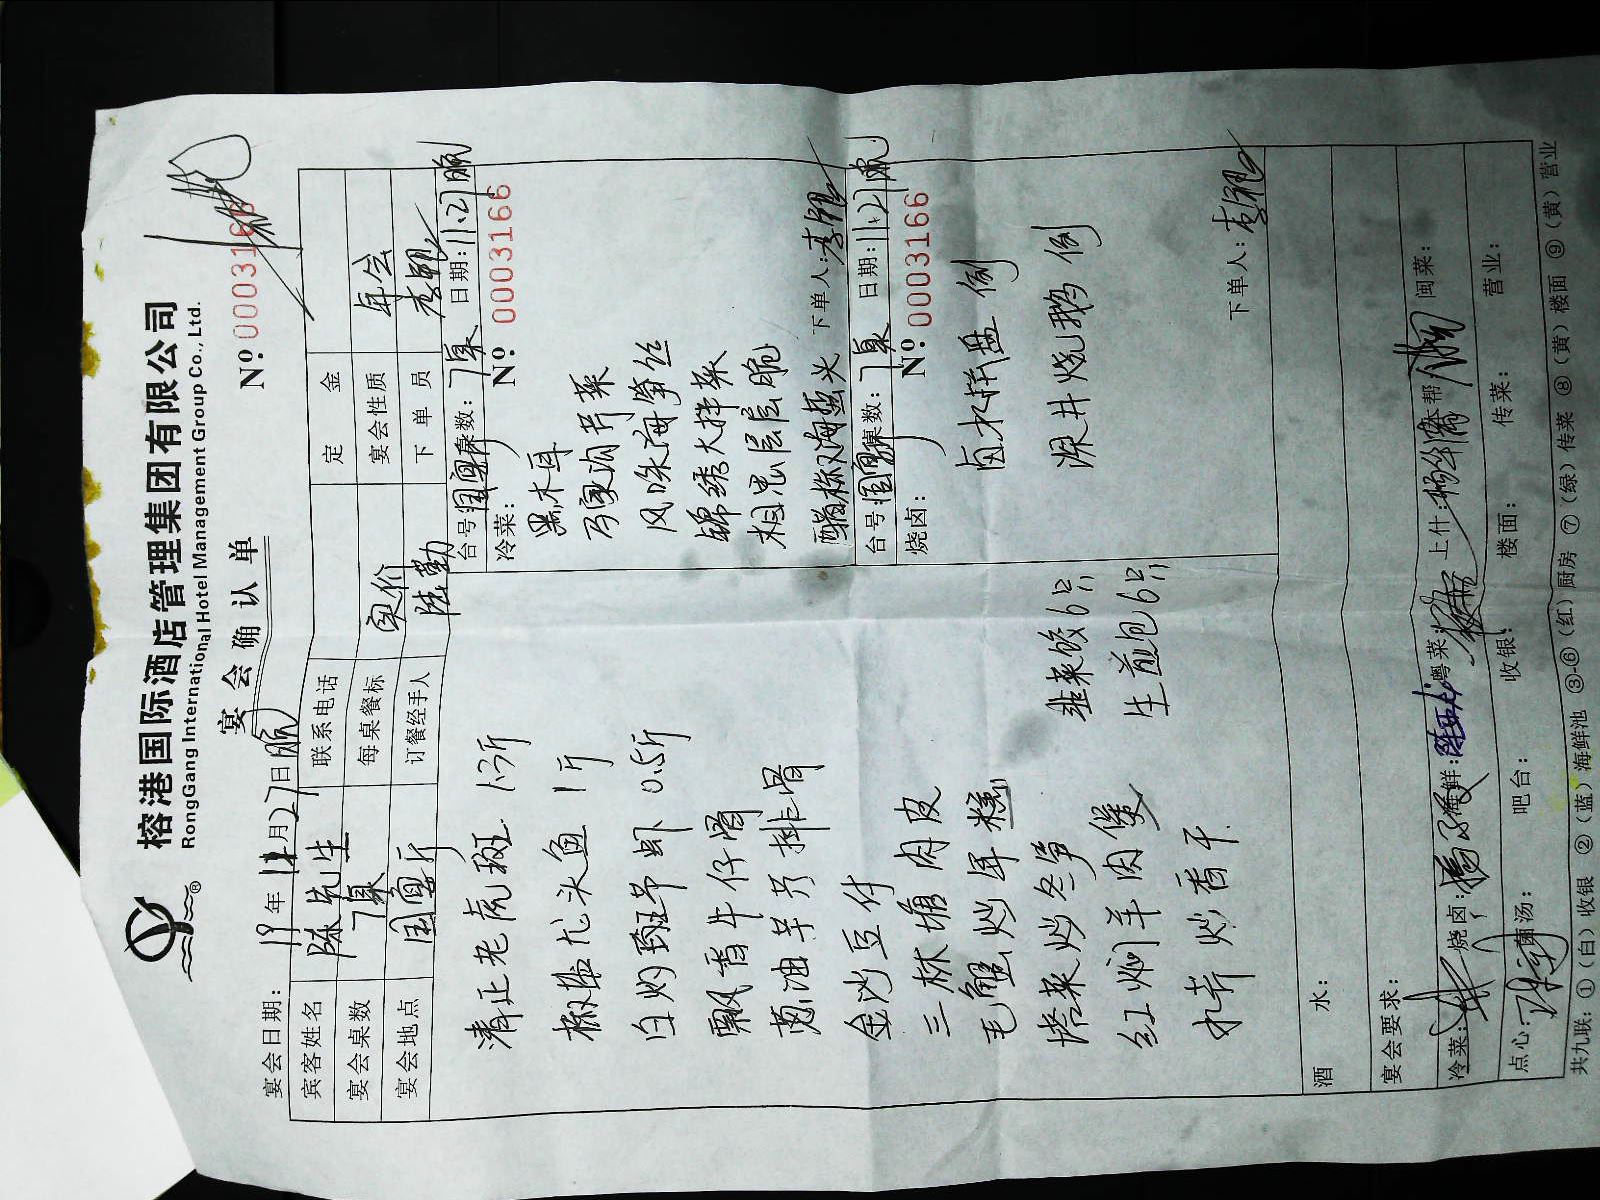 榕港国际酒店管理集团有限公司
RongGang International Hotel Management Group Co., Ltd.
®
宴会确认单
Nº: 0003166
宴会日期: 19年 月27日
宾客姓名 陈先生 联系电话 定金
宴会桌数 7桌 每桌餐标 实价 宴会性质 年会
宴会地点 国宴厅 订餐经手人 陆勤 下单员
清正老虎斑 1.3斤
椒盐龙头鱼 1斤
白灼斑节虾 0.5斤
飘香牛仔骨
葱油芋艿排骨
金沙豆付
三林塘肉皮
毛蟹炒年糕
塔菜炒冬笋
红焖羊肉煲
水芹炒香干
韭菜饺6只
生煎包6只
台号: 国宴厅 桌数: 7桌 日期: 11.27
冷菜: Nº: 0003166
黑木耳
风味海笋丝
锦绣大拌菜
相思层层脆
醋椒海蜇头
下单人:
台号: 国宴厅 桌数: 7桌 日期: 11.27
烧卤: Nº: 0003166
卤水拼盘 例
深井烧鹅 例
下单人:
酒水:
宴会要求:
冷菜: 烧卤: 海鲜: 粤菜: 上什: 本帮: 闽菜:
点心: 蒲汤: 吧台: 收银: 楼面: 传菜: 营业:
共九联: ①（白）收银 ②（蓝）海鲜池 ③-⑥（红）厨房 ⑦（绿）传菜 ⑧（黄）楼面 ⑨（黄）营业